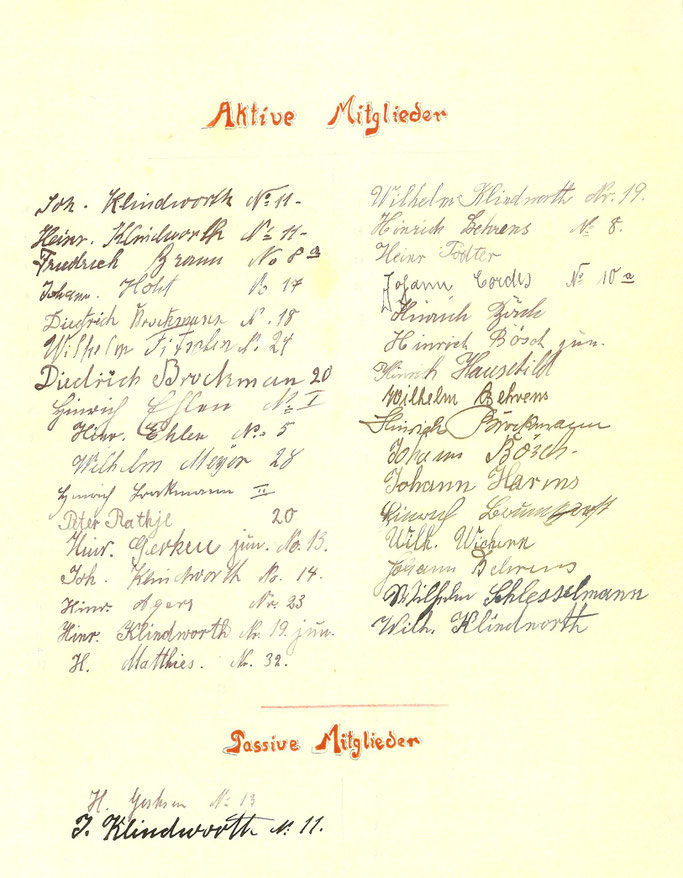 Aktive Mitglieder
Joh. Klindworth No 11-
Heinr. Klindworth No 11-
Friedrich Braun No 8 a
Johann. Holst No 17
Diedrich Brockmann N. 18
Wilhelm Fitschen N. 24
Diedrich Brockman 20
Hinrich Ehlen No I
Hinr. Ehlen No 5
Wilhelm Meyer 28
Hinrich Brockmann II
Peter Rathje 20
Hinr. Gerken jun. No. 13.
Joh. Klindworth No. 14.
Hinr. Nr. 23
Hinr. Klindworth Nr. 19. jun.
H. Matthies. Nr. 32.
Wilhelm Klindworth Nr. 19.
Hinrich Behrens No 8.
Heinr Tödter
Johann Cordes No 10 a
Hinrich Bösch
Heinrich Bösch jun.
Hinrich Hauschild
Wilhelm Behrens
Hinrich Brockmann
Johann Bösch.
Johann Harms
Hinrich
Wilh. Wichern
Johann Behrens
Wilhelm Schlesselmann
Wilh. Klindworth
Passive Mitglieder
H. No 13
J. Klindworth No 11.